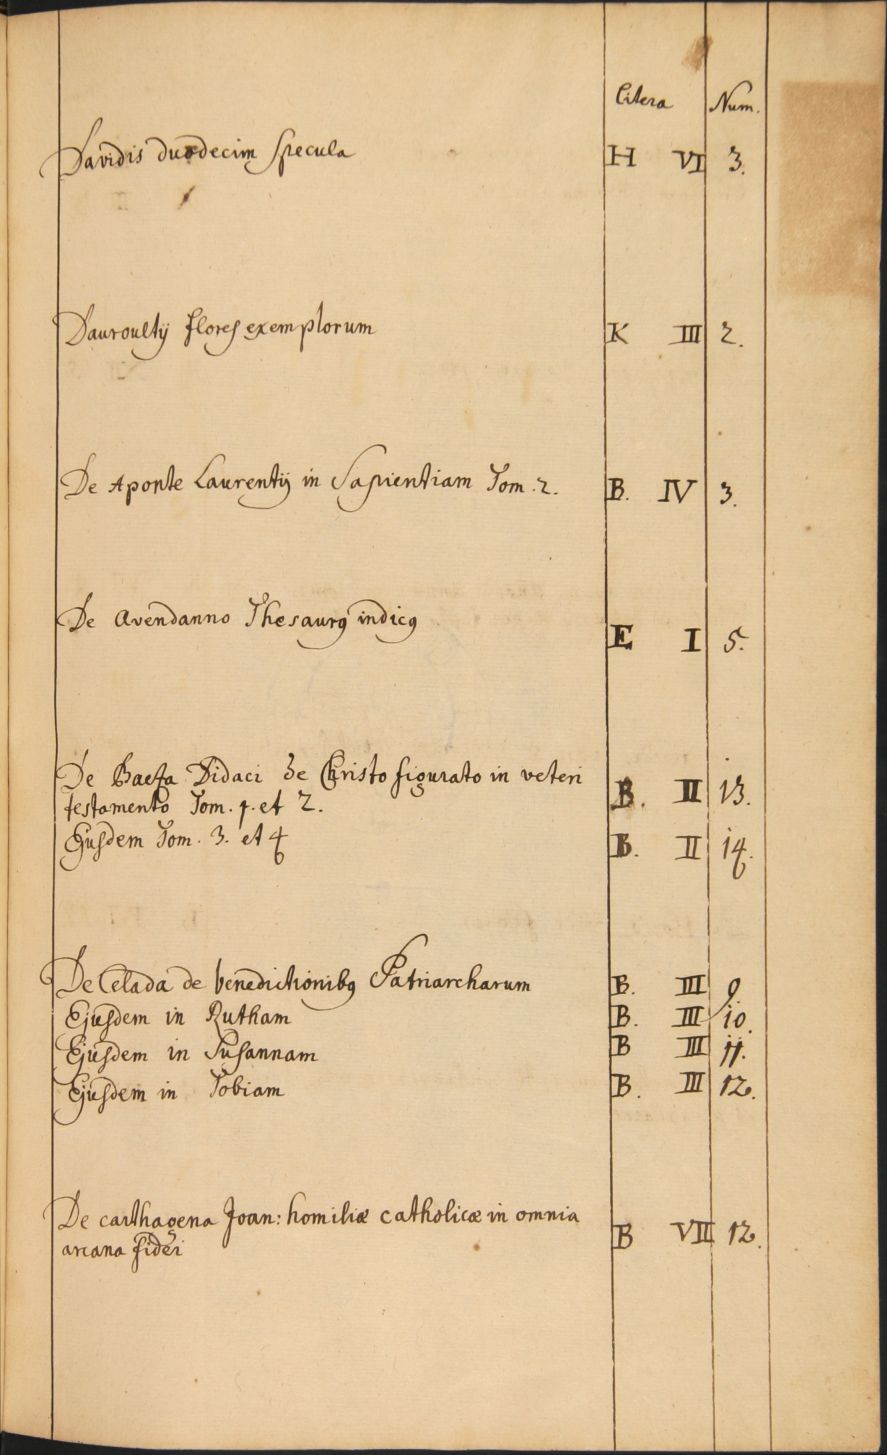 Litera Num.
Davidis duodecim Specula H VI 3.
Dauroultij flores exemplorum K III 2.
De Aponte Laurentij in Sapientiam Tom. 2. B. IV 3.
De Avendanno Thesaurꝰ indicꝰ E I 5.
De Baeza Didaci de Christo figurato in veteri
testamento Tom. 1. et 2. B. II 13.
Ejusdem Tom. 3. et 4 B. II 14.
De Celada de benedictionibꝰ Patriarcharum B. III 9.
Ejusdem in Rutham B. III 10.
Ejusdem in Susannam B III 11.
Ejusdem in Tobiam B. III 12.
De carthagena Joan: homiliæ catholicæ in omnia
arcana fidei B VII 12.